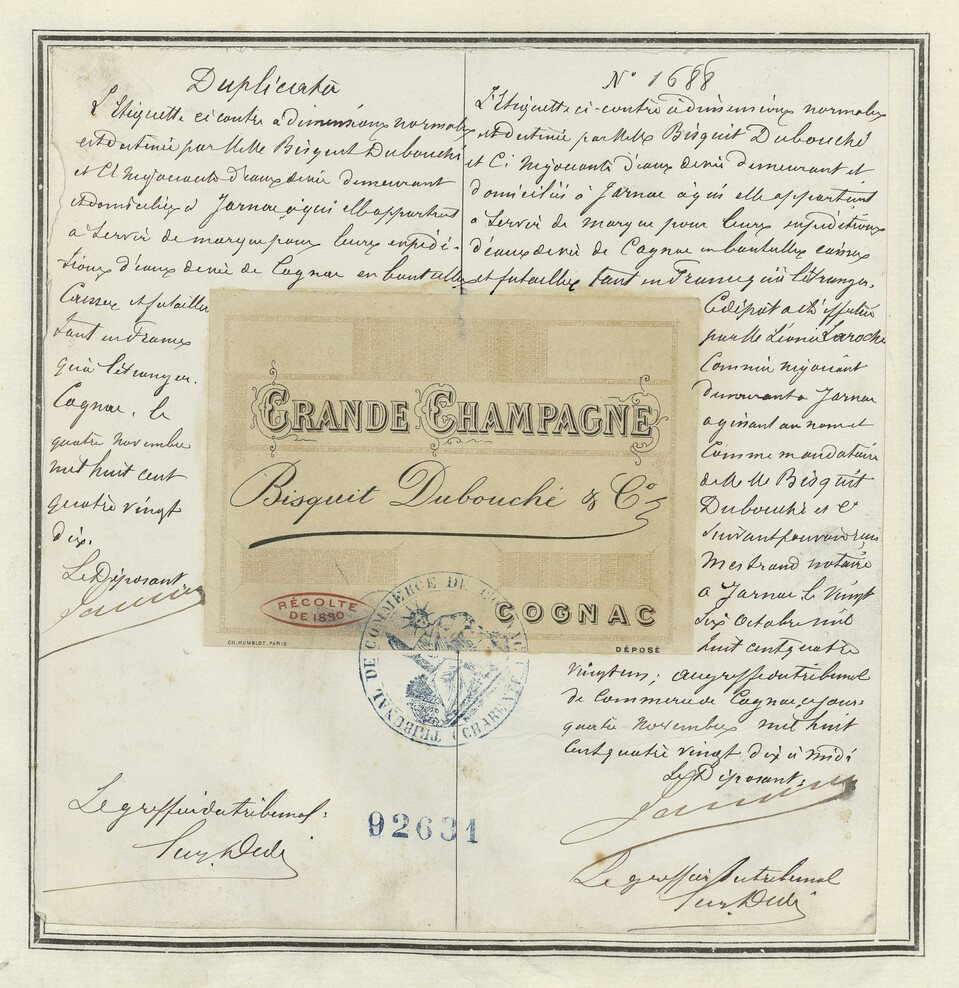 Duplicata
L'Etiquette ci contre a dimensions normales
est destinée par MM Bisquit Dubouché
et Cie Négociants d'eaux de vie demeurant
et domiciliés à Jarnac à qui elle appartient
a servir de marque pour leurs expédi-
tions d'eaux de vie de Cognac en bouteilles
Caisses et futailles
tant en France
qu'à l'étranger.
Cognac, le
quatre Novembre
mil huit cent
quatre vingt
dix.
Le Déposant
Le greffier du tribunal:
N° 1688
L'Etiquette ci-contre à dimensions normales
est destinée par MM Bisquit Dubouché
et Ci Négociants d'eaux de vie demeurant et
domiciliés à Jarnac à qui elle appartient
a servir de marque pour leurs expéditions
d'eaux de vie de Cognac en bouteilles caisses
et futailles tant en France qu'à l'étranger.
Ce dépôt a été effectué
par M Léonce Laroche
Commis négociant
demeurant à Jarnac
agissant au nom et
Comme mandataire
de MM Bisquit
Dubouché et Ce
suivant pouvoir reçu
Mestraud notaire
a Jarnac le vingt
six Octobre mil
huit cent quatre
vingt un; au greffe du tribunal
de Commerce de Cognac ce jour
quatre Novembre mil huit
Cent quatre vingt dix à midi
Le Déposant:
Le greffier du tribunal
GRANDE CHAMPAGNE
Bisquit Dubouché & Co
RÉCOLTE
DE 1890
COGNAC
CH. HUMBLOT, PARIS
DÉPOSÉ
TRIBUNAL DE COMMERCE DE COGNAC (CHARENTE)
92631